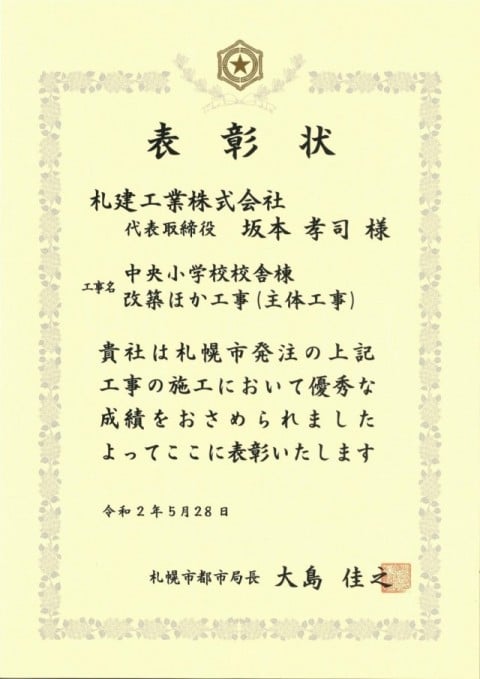 表彰状
札建工業株式会社
代表取締役 坂本 孝司 様
工事名
中央小学校校舎棟
改築ほか工事(主体工事)
貴社は札幌市発注の上記
工事の施工において優秀な
成績をおさめられました
よってここに表彰いたします
令和2年5月28日
札幌市都市局長 大島 佳之